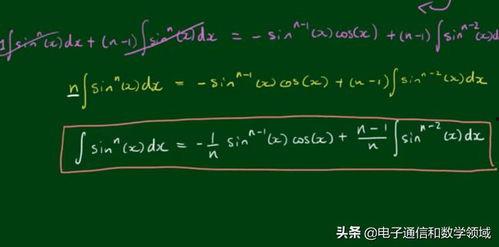 1∫sinⁿ(x)dx + (n-1)∫sinⁿ(x)dx = -sinⁿ⁻¹(x)cos(x) + (n-1)∫sinⁿ⁻²(x)d
n∫sinⁿ(x)dx = -sinⁿ⁻¹(x)cos(x) + (n-1)∫sinⁿ⁻²(x)dx
∫sinⁿ(x)dx = -1/n sinⁿ⁻¹(x)cos(x) + n-1/n ∫sinⁿ⁻²(x)dx
头条 @电子通信和数学领域